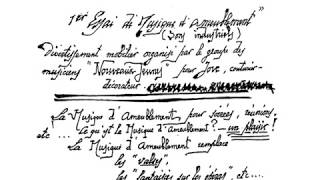 1er Essai de "Musique d'Ameublement"
(Sons industriels)
Divertissement mobilier organisé par le groupe des
musiciens "Nouveaux Jeunes" pour Jove, couturier-
décorateur
La Musique d'Ameublement pour soirées, réunions,
etc ... Ce qu'est la Musique d'Ameublement? — un plaisir!
La Musique d'Ameublement remplace
les "valses"
etc .... les "fantaisies sur les opéras", etc ...